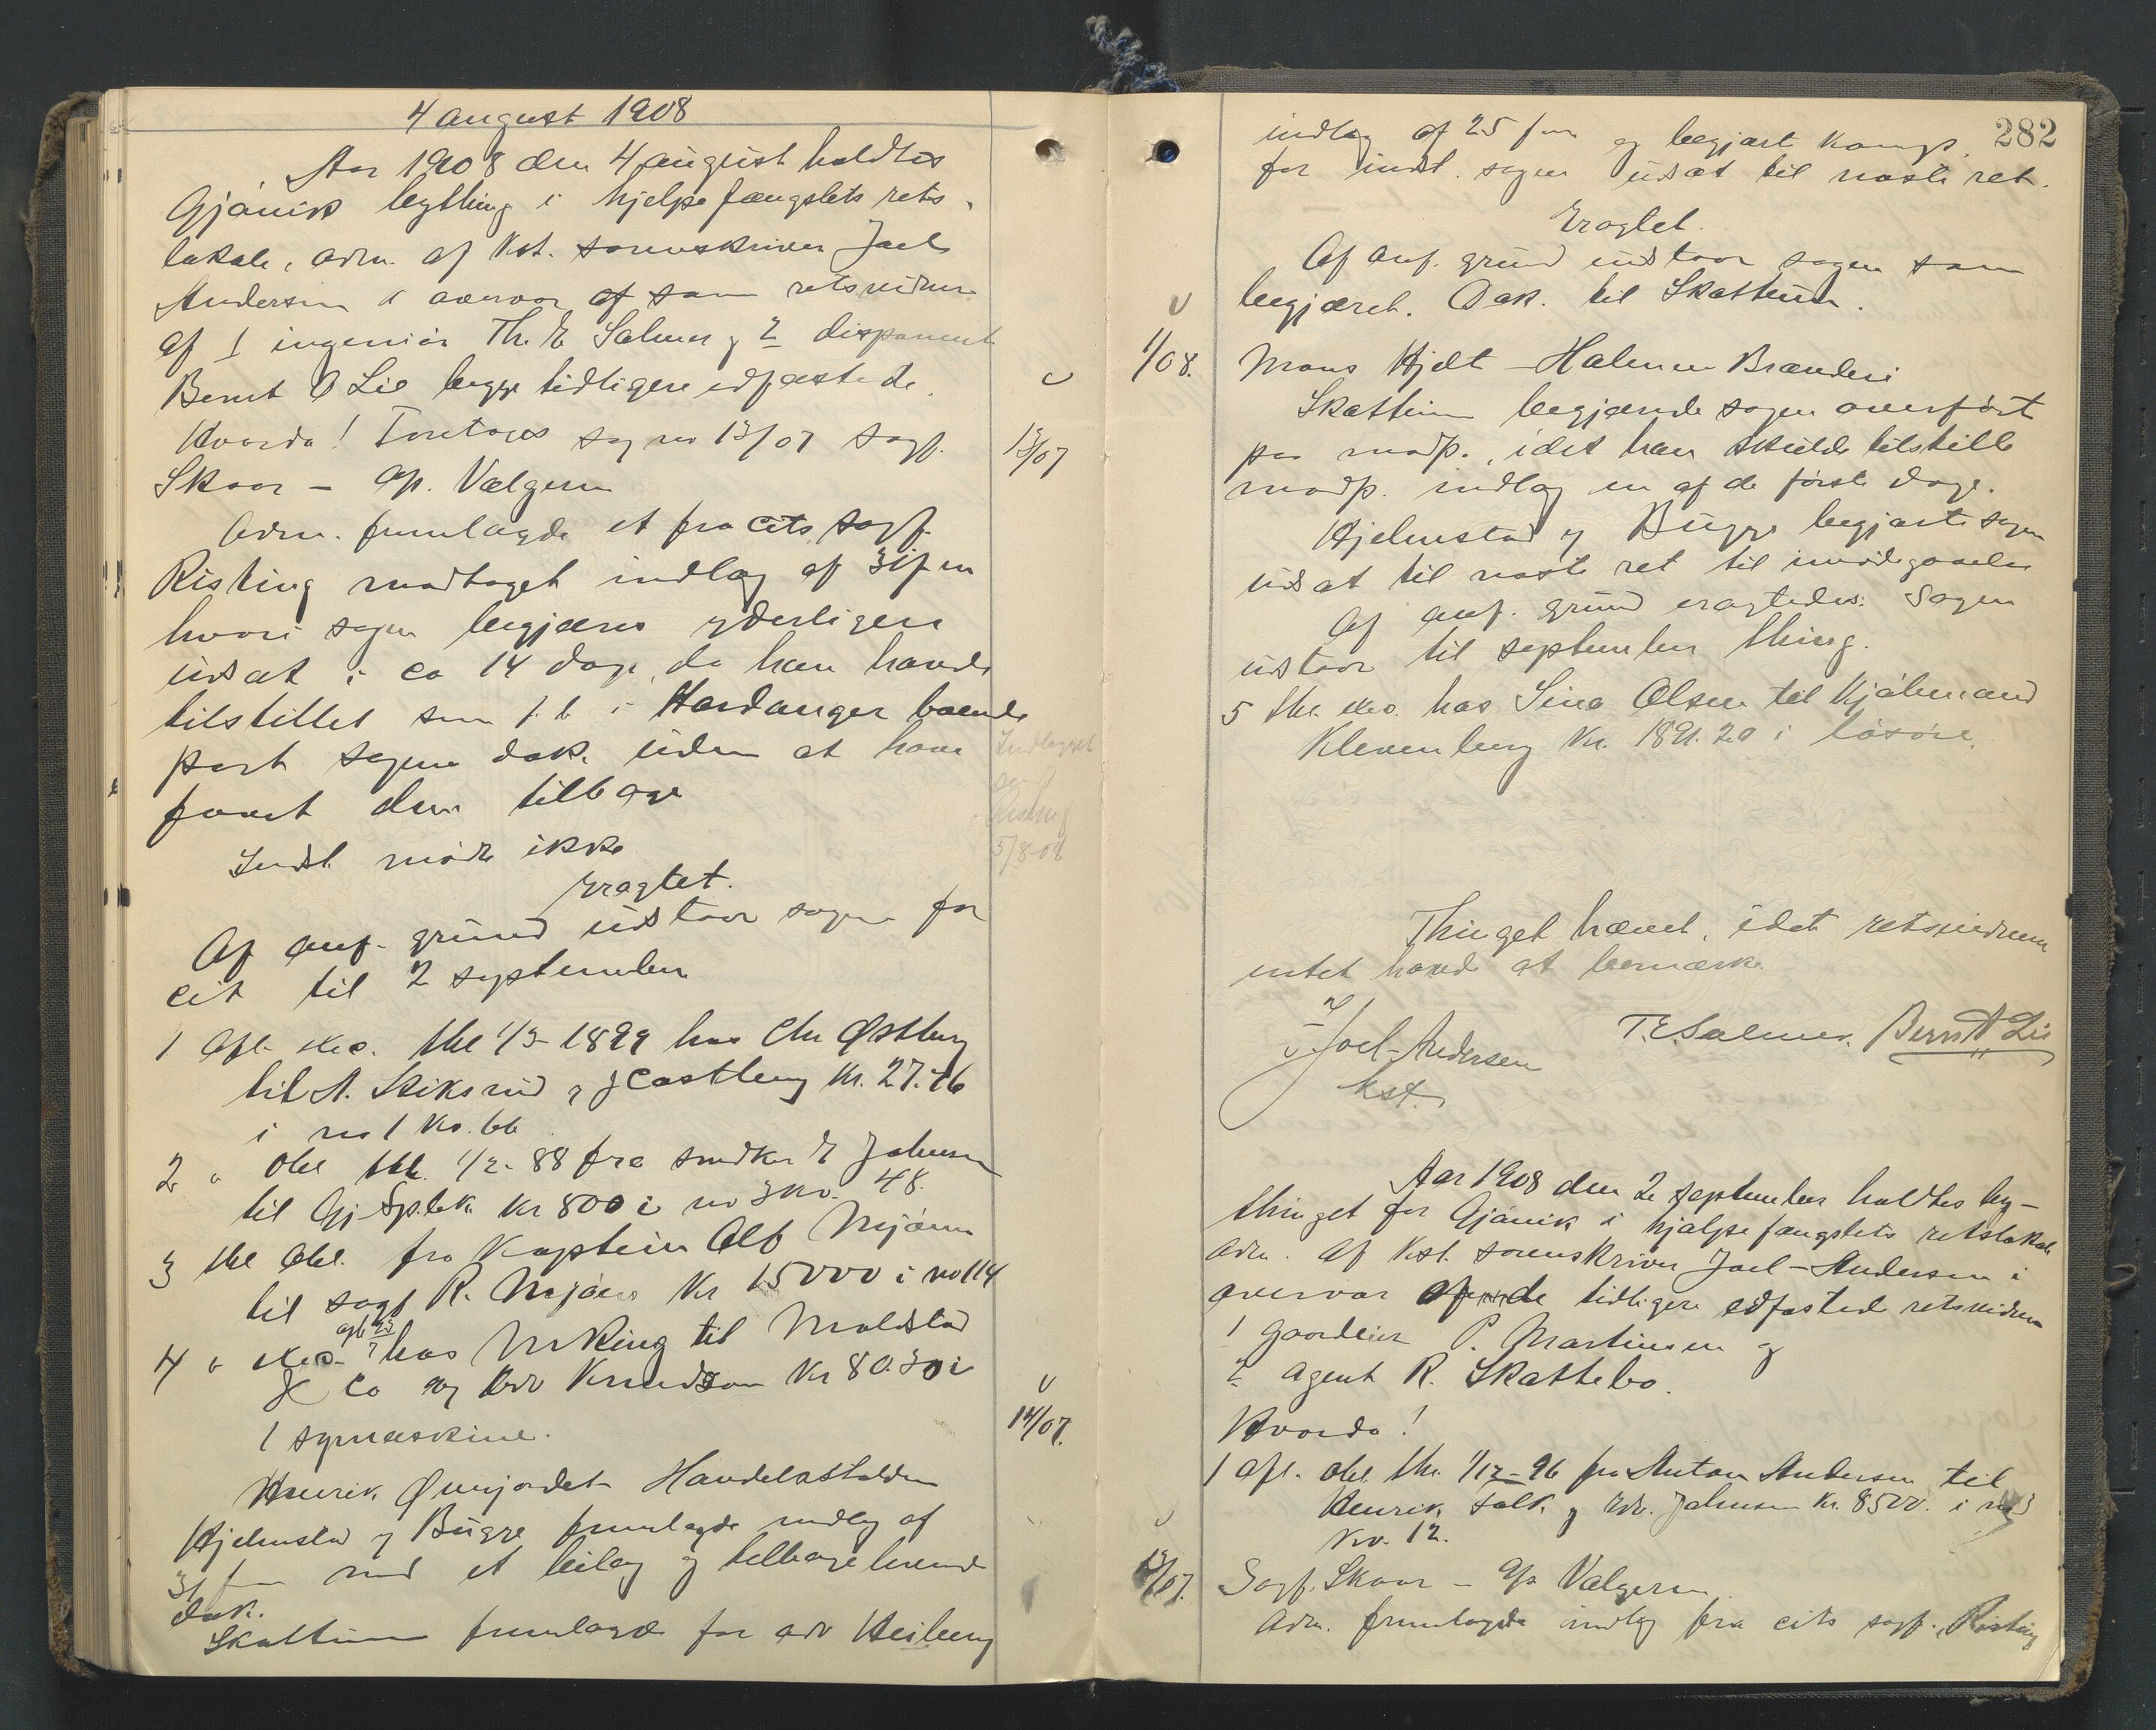 4 august 1908
Aar 1908 den 4 august holdtes
Gjøvik bything i hjelpefængslets rets-
lokale, adm. af Kst. sorenskriver Joel
Andersen i overvær af som retsvidner
af 1 ingeniør Th. E Salmer og 2 disponent
Bernt A Lie begge tidligere edfæstede
Hvorda! Foretoges sag no 13/07 sagf.
13/07
Skaar – Op. Valgerm
Adm. fremlagde et fra cits sagf.
Risting modtaget indlæg af 31 fm
hvori sagen begjæres yderligere
udsat i ca 14 dage, da han havde
tilstillet sin i Hardanger boende
part sagens dok. uden at have
faaet dem tilbage
Indlægget
Risting
5/8-08
Indst. mødte ikke
Eragtet.
Af anf. grund udstaar sagen for
cit til 2 september
1 Afl. exe. thl 1/3-1899 hos Chr Østberg
til A. Skiksrud og J Castberg Kr. 27.76
i no 1 Kv. 66
2 " obl thl. 1/2-88 fra snedker E Johnsen
til Gj. Sp.bk. Kr 800 i no 3 Kv. 48.
3 thl obl. fra Kaptein Alf Mjøen
til sagf R. Mjøen Kr 15000 i no 114
4 " exe. hos M Ring til Moldstad
& Co og Edv Knudson Kr 80.30 i
1 symaskine.
14/07.
Henrik Øverjordet – Handelsstanden
Hjelmstad og Bugge fremlagde indlæg af
31 fm med et bilag og tilbageleverede
dok.
Skattum fremlagde for adv Heiberg
282
indlæg af 25 fm og begjært komp.
for indst. sagen udsat til næste ret.
Eragtet.
Af anf. grund udstaar sagen som
begjæret. Dok. til Skattum.
1/08. Mons Hjelt – Halmer Brænderi
Skattum begjærede sagen overført
paa modp., idet han skulde tilstille
modp. indlæg en af de første dage.
Hjelmstad og Bugge begjærte sagen
udsat til næste ret til imødegaaelse
Af anf. grund eragtedes: Sagen
udstaar til september thing.
5 thl. exe. hos Sina Olsen til Hjalmer and
Klevenberg Kr. 1891.20 i løsøre.
Thinget hævet, idet retsvidnerne
intet havde at bemærke
Joel-Andersen
Kst.
T. E Salmer. Bernt A Lie
Aar 1908 den 2 september holdtes by-
thinget for Gjøvik i hjælpefængslets retslokale
adm. af Kst. sorenskriver Joel-Andersen i
overvær af de tidligere edfæstede retsvidner
1 gaardeier P. Martinsen og
2 agent R. Skattebo.
Hvorda!
1 Afl. obl. thl. 1/12-96 fra Anton Andersen til
Henrik Falk og Edv. Johnsen Kr. 8500. i no 3
Kv. 12.
13/07. Sagf. Skaar – Op Valgerm
Adm. fremlagde indlæg fra cits sagf. Risting